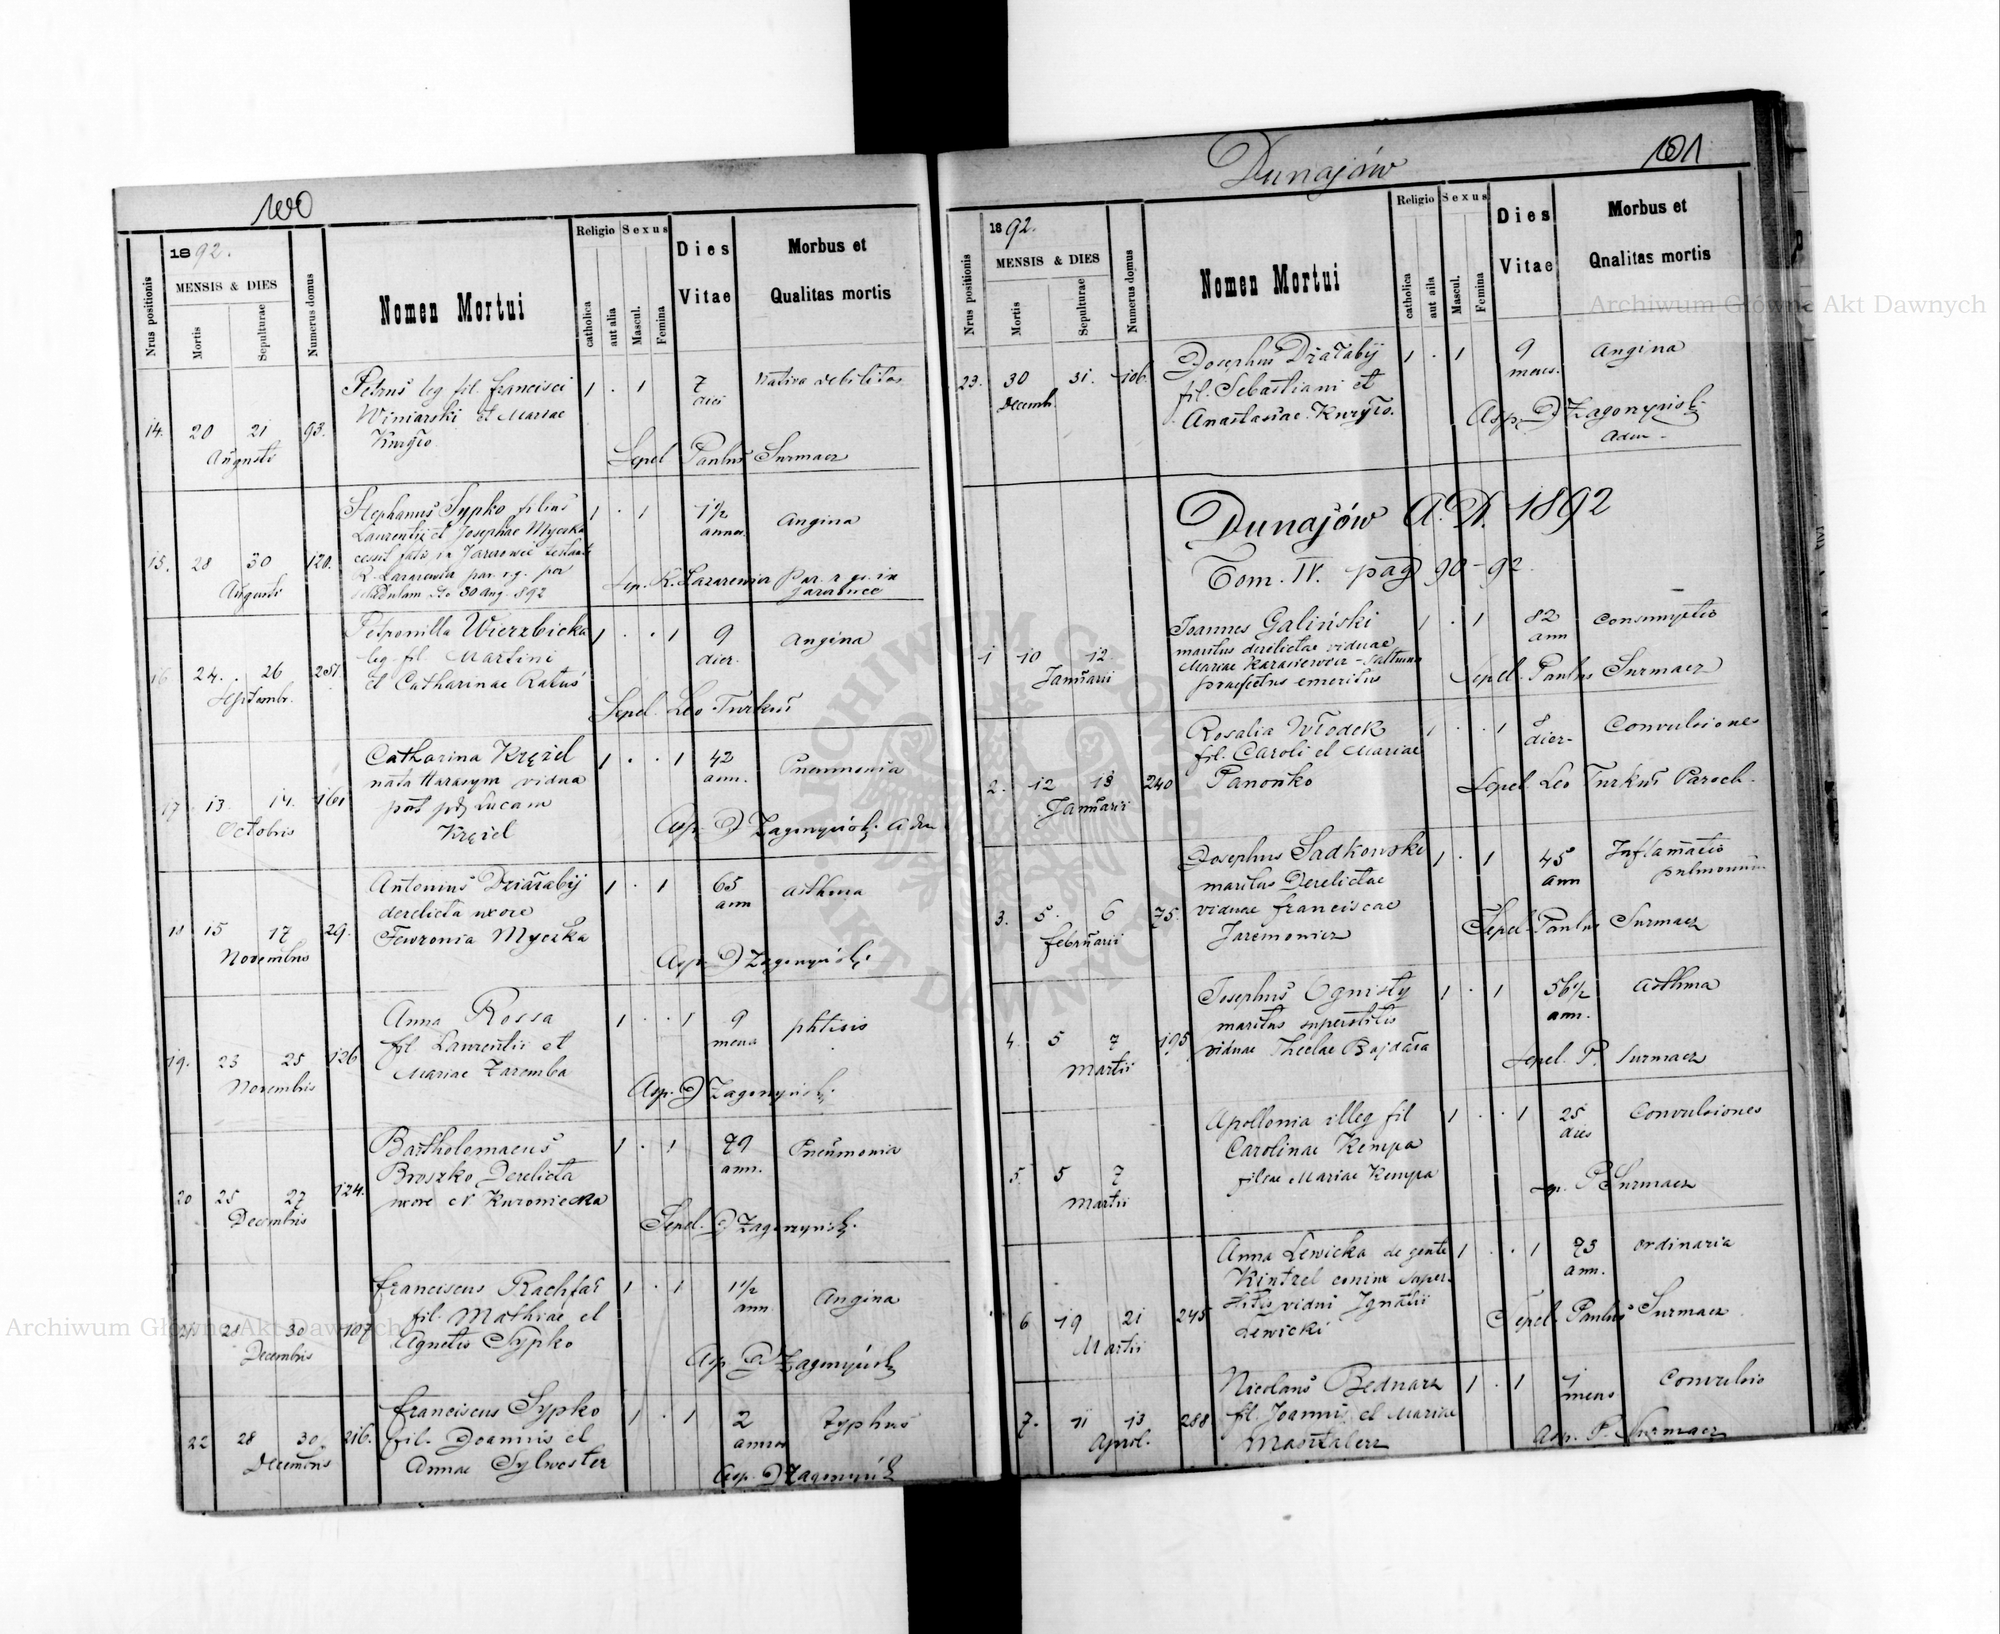 100
1892.
Nrus positionis
MENSIS & DIES
Mortis
Sepulturae
Numerus domus
Nomen Mortui
Religio
catholica
aut alia
Sexus
Mascul.
Femina
Dies
Vitae
Morbus et
Qualitas mortis
14. 20 21
Augusti
93.
Petrus leg fil. Francisci
Winiarski et Mariae
Kuryło
1 . 1
7
dies
nativa debilitas
Sepel Paulus Surmacz
15. 28 30
Augusti
120.
Stephanus Sypko filius
Laurentii et Josephae Myczka
cessit fatis in
R. Lazarewicz par. r.g. per
schedulam 30 Aug. 892
1 . 1
1½
annor.
Angina
Sep. R. Lazarewicz Par. r. gr. in
16 24. 26
Septembr.
251
Petronilla Wierzbicka
leg. fil. Martini
et Catharinae Ratus
1 . . 1
9
dier.
Angina
Sepel. Leo Turkus
17 13. 14.
Octobris
161
Catharina Kręziel
nata Harasym vidua
post Lucam
Kręziel
1 . . 1
42
ann.
Pneumonia
Asp. D Zagorzyński. Adm
18 15 17
Novembris
29.
Antonius Działabij
derelicta uxore
Fewronia Myczka
1 . 1
65
ann
asthma
Asp. D Zagorzyński.
19. 23 25
Novembris
126
Anna Rossa
fil. Laurentii et
Mariae Zaremba
1 . . 1
9
mens
phtisis
Asp. D Zagorzyński.
20 25 27
Decembris
124.
Bartholomaeus
Broszko Derelicta
uxore
1 . 1
79
ann.
Pneumonia
Sepel. D Zagorzyński.
30
Decembris
107
Franciscus Rachfał
fil. Mathiae et
Agnetis Sypko
1 . 1
1½
ann
Angina
Asp D Zagorzyński
22 28 30.
Decembris
216.
Franciscus Sypko
fil. Joannis et
Annae Sylwester
1 . 1
2
annor
typhus
Asp. D Zagorzyński
Dunajów
101
1892.
Nrus positionis
MENSIS & DIES
Mortis
Sepulturae
Numerus domus
Nomen Mortui
Religio
catholica
aut alia
Sexus
Mascul.
Femina
Dies
Vitae
Morbus et
Qnalitas mortis
23. 30 31.
Decemb.
106.
Josephus Działabij
fil. Sebastiani et
Anastasiae Kuryło.
1 . 1
9
mens.
Angina
Asp. D Zagorzyński
Adm
Dunajów A.D. 1892
Tom. IV. pag 90-92.
1 10 12.
Januarii
Joannes Galiński
maritus derelictae viduae
Mariae Karasiewicz - saltuum
praefectus emeritus
1 . 1
82
ann
Consumptio
Sepel. Paulus Surmacz
2. 12 13
Januarii
240
Rosalia Włodek
fil. Caroli et Mariae
Panońko
1 . . 1
8
dier
Convulsiones
Sepel. Leo Turkus Paroch.
3. 5. 6
Februarii
75.
Josephus Sadkowski
maritus Derelictae
viduae Franciscae
Jaremowicz
1 . 1
45
ann
Inflamatio
pulmonum
Sepel. Paulus Surmacz
4. 5 7
Martii
195
Josephus Ognisty
maritus superstitis
viduae Theclae Bajdała
1 . 1
56½
ann.
Asthma
Sepel. P. Surmacz
5. 5 7
Martii
Apollonia illeg fil
Carolinae Kempa
filiae Mariae Kempa
1 . . 1
25
dies
Convulsiones
P Surmacz
6 19 21
Martii
245
Anna Lewicka de gente
Kintzel coniux super-
stitis vidui Ignatii
Lewicki
1 . . 1
73
ann.
Ordinaria
Sepel. Paulus Surmacz
7. 11 13
April.
288
Nicolaus Bednarz
fil. Joannis et Mariae
Masztalerz
1 . 1
1
mens
Convulsio
Asp. P. Surmacz
Archiwum Główne Akt Dawnych
Archiwum Główne Akt Dawnych
ARCHIWUM GŁÓWNE AKT DAWNYCH